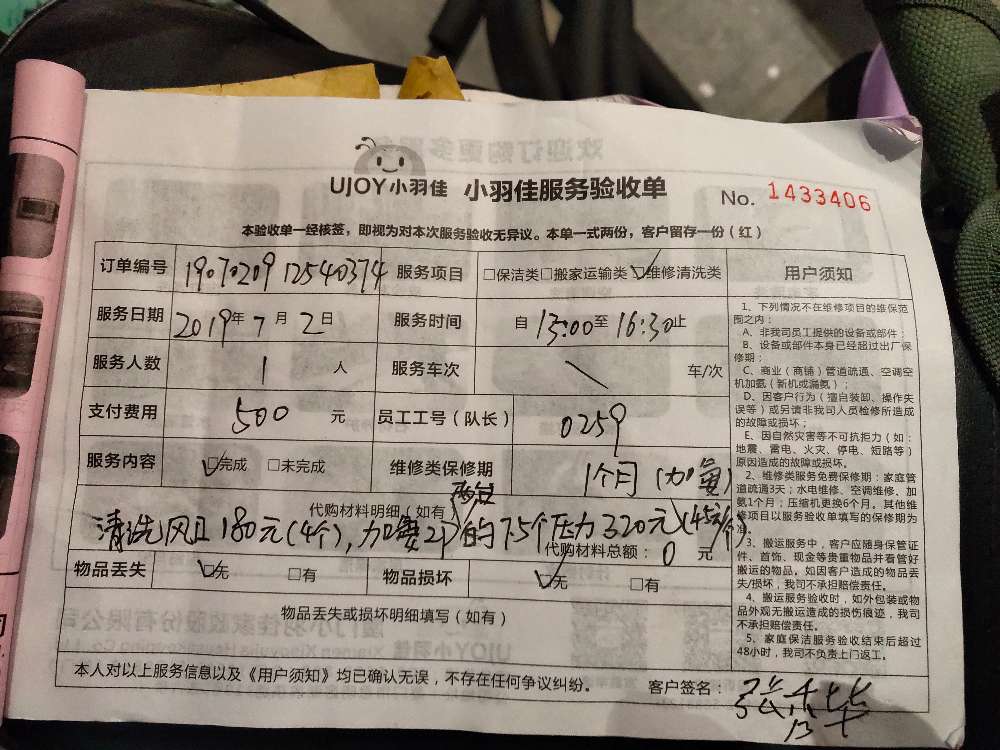 UJOY小羽佳 小羽佳服务验收单 No. 1433406
本验收单一经核签，即视为对本次服务验收无异议。本单一式两份，客户留存一份（红）
订单编号 19070209 12540374 服务项目 □保洁类□搬家运输类☑维修清洗类
服务日期 2019年7月2日 服务时间 自13:00至16:30止
服务人数 1 人 服务车次 \ 车/次
支付费用 500 元 员工工号（队长） 0259
服务内容 ☑完成 □未完成 维修类保修期 1个月（加氟）
代购材料明细（如有）
清洗风口180元(4个),加氟2P的7.5个压力320元(45元/个)
代购材料总额：0 元
物品丢失 ☑无 □有 物品损坏 ☑无 □有
物品丢失或损坏明细填写（如有）
本人对以上服务信息以及《用户须知》均已确认无误，不存在任何争议纠纷。 客户签名：
用户须知
1、下列情况不在维修项目的维保范
围之内：
A、非我司员工提供的设备或部件；
B、设备或部件本身已经超过出厂保
修期；
C、商业（商铺）管道疏通、空调空
机加氨（新机或漏氨）；
D、因客户行为（擅自装卸、操作失
误等）或另请非我司人员检修所造成
的故障或损坏；
E、因自然灾害等不可抗拒力（如：
地震、雷电、火灾、停电、短路等）
原因造成的故障或损坏。
2、维修类服务免费保修期：家庭管
道疏通3天；水电维修、空调维修、加
氨1个月；压缩机更换6个月。其他维
修项目以服务验收单填写的保修期为
准。
3、搬运服务中，客户应随身保管证
件、首饰、现金等贵重物品并看管好
搬运的物品。如因客户造成的物品丢
失/损坏，我司不承担赔偿责任。
4、搬运服务验收时，如外包装或物
品外观无搬运造成的损伤痕迹，我司
不承担赔偿责任。
5、家庭保洁服务验收结束后超过
48小时，我司不负责上门返工。